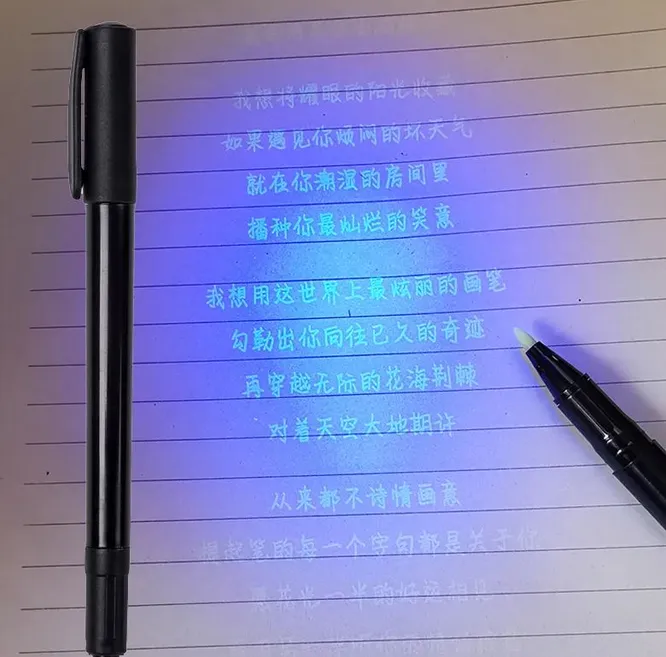 我想将耀眼的阳光收藏
如果遇见你烦闷的坏天气
就在你潮湿的房间里
播种你最灿烂的笑意
我想用这世界上最炫丽的画笔
勾勒出你向往已久的奇迹
再穿越无际的花海荆棘
对着天空大地期许
从来都不诗情画意
提起笔的每一个字句都是关于你
一半的好运